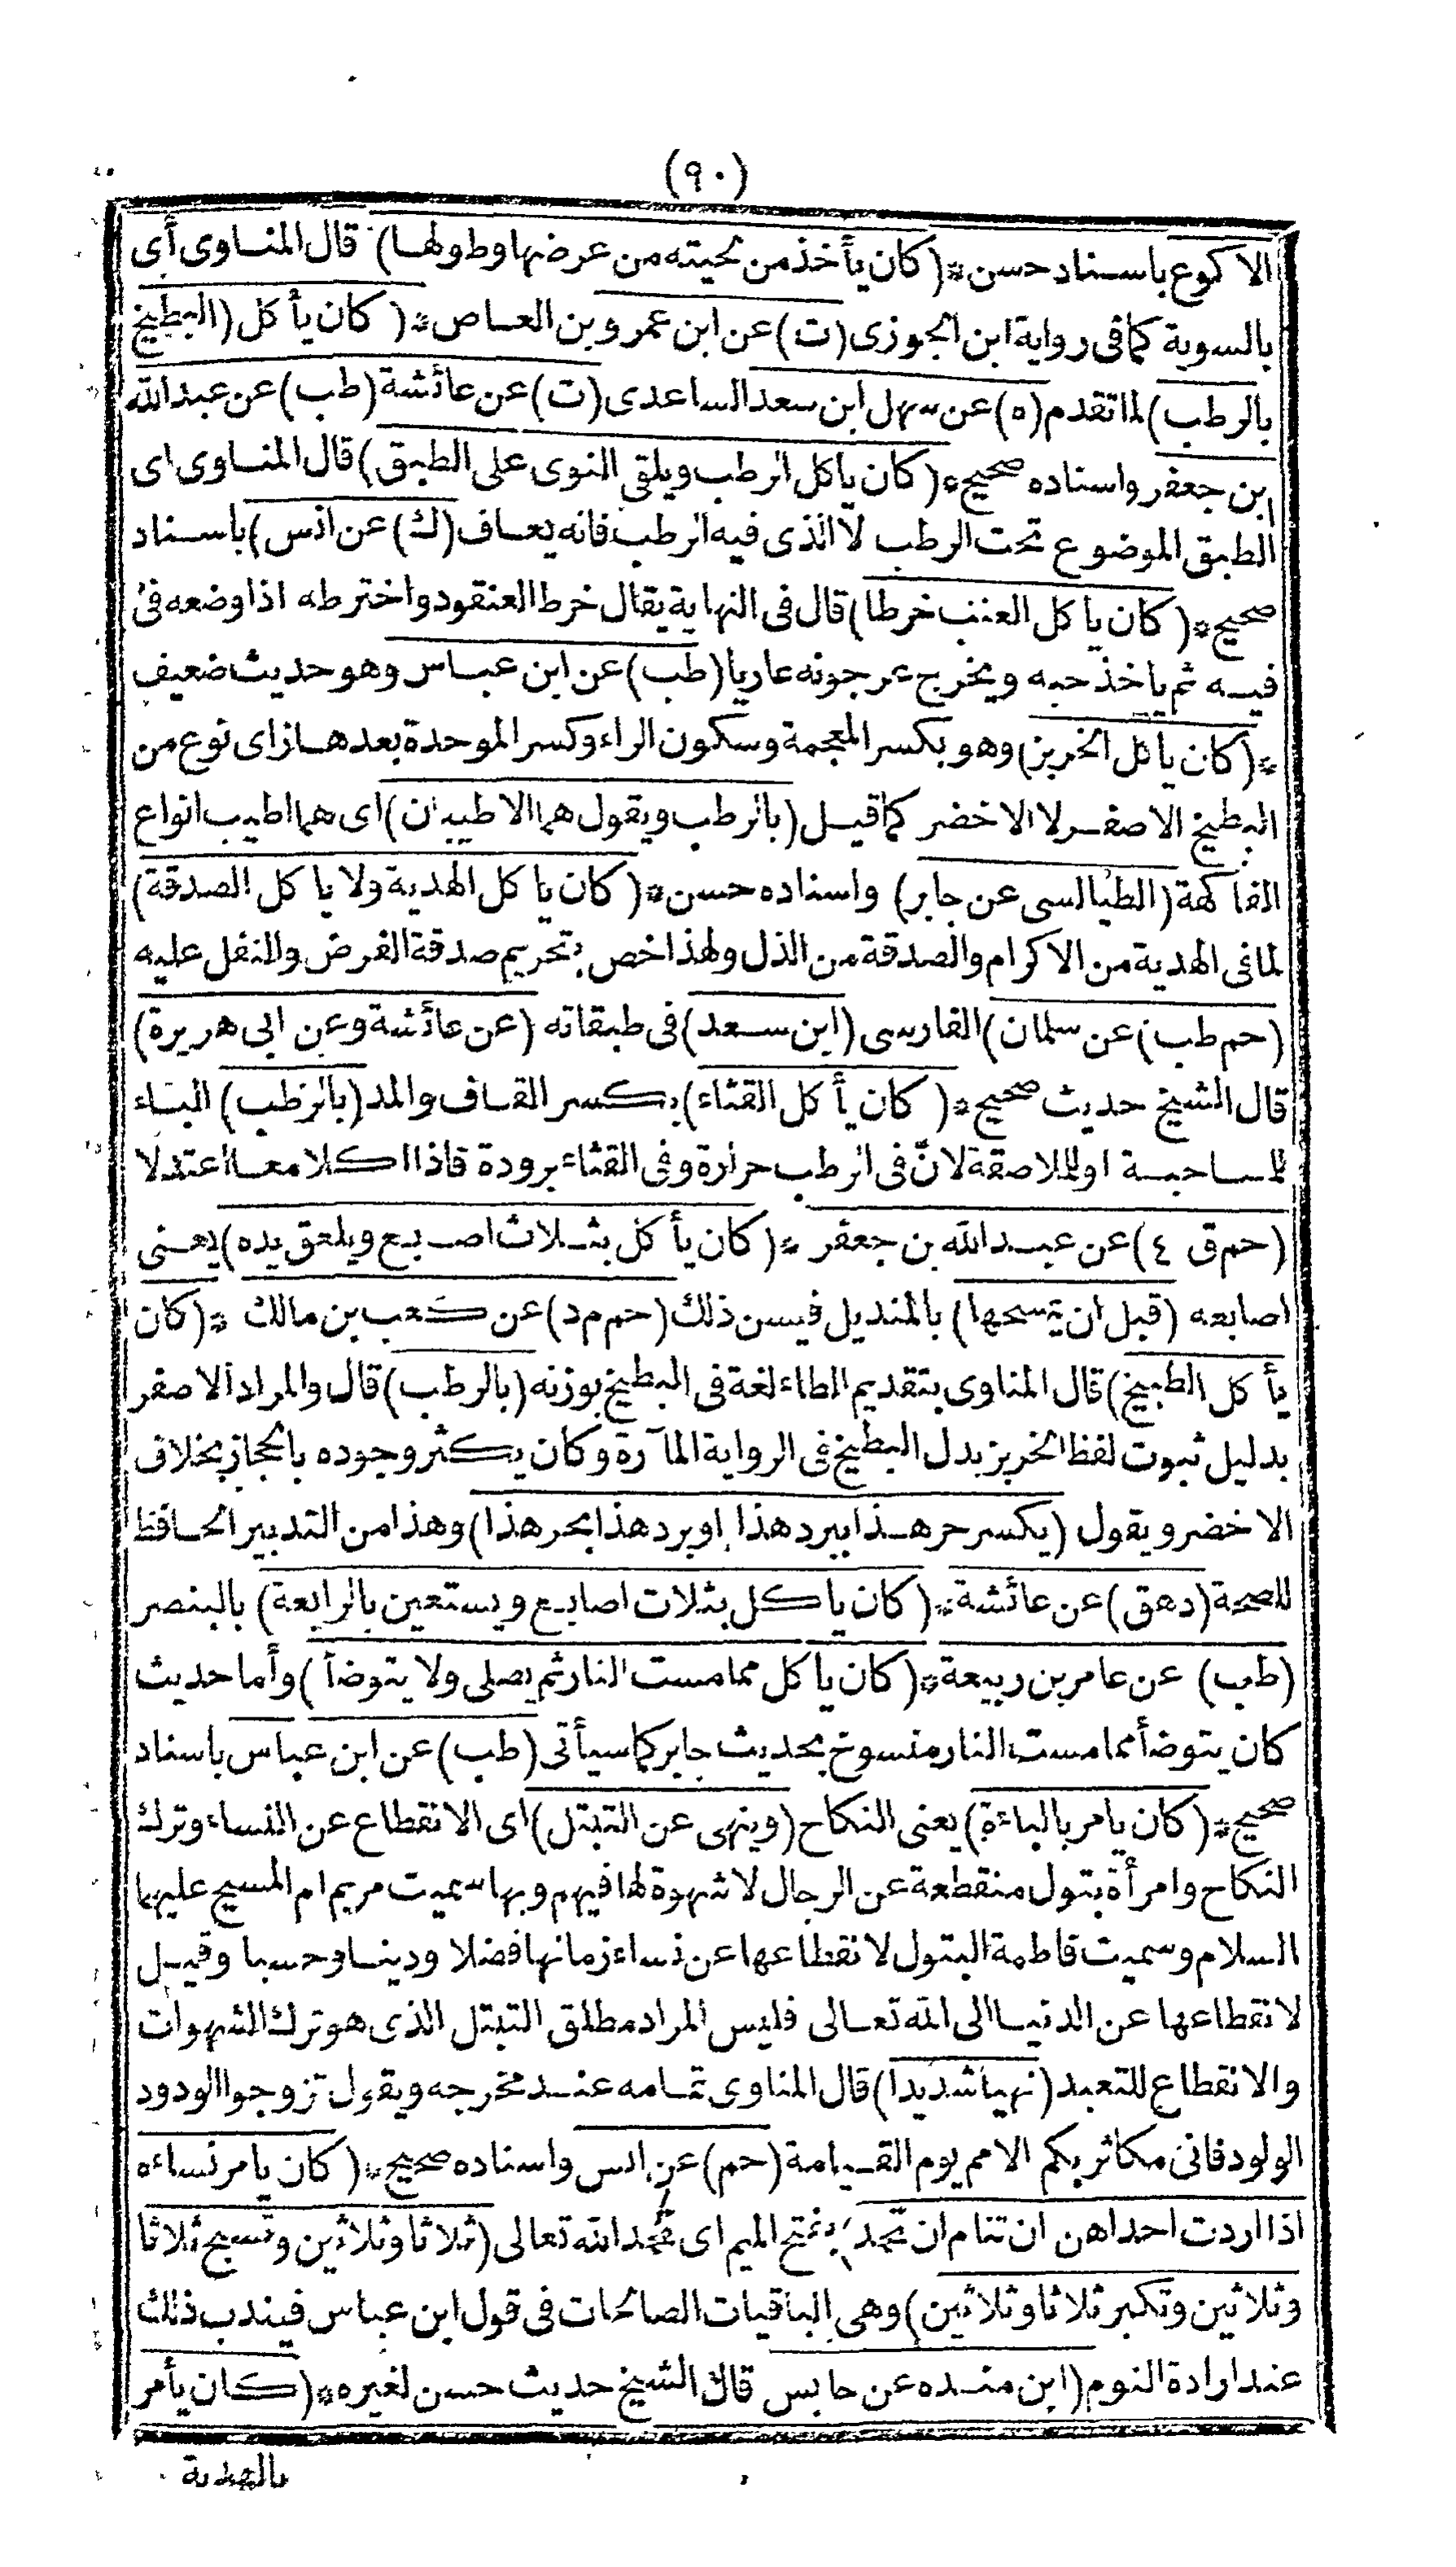 (٩٠)
الاكوع باسناد حسن * (كان يأخذ من لحيته من عرضها وطولها) قال المناوى أى
بالسوية كما فى رواية ابن الجوزى (ت) عن ابن عمرو بن العاص * (كان يأكل (البطيخ
بالرطب) لما تقدم (ه) عن سهل ابن سعد الساعدى (ت) عن عائشة (طب) عن عبد الله
ابن جعفر واسناده صحيح * (كان يأكل الرطب ويلقى النوى على الطبق) قال المناوى اى
الطبق الموضوع تحت الرطب لا الذى فيه الرطب فانه يعاف (ك) عن انس) باسناد
صحيح * (كان يأكل العنب خرطا) قال فى النهاية يقال خرط العنقود واخترطه اذا وضعه فى
فيه ثم ياخذ حبه ويخرج عرجونه عاريا (طب) عن ابن عباس وهو حديث ضعيف
* (كان ياكل الخربز) وهو بكسر المعجمة وسكون الراء وكسر الموحدة بعدها زاى نوع من
البطيخ الاصفر لا الاخضر كما قيل (بالرطب ويقول هما الاطيبان) اى هما اطيب انواع
الفاكهة (الطيالسى عن جابر) واسناده حسن * (كان ياكل الهدية ولا ياكل الصدقة)
لما فى الهدية من الاكرام والصدقة من الذل ولهذا خص بتحريم صدقة الفرض والنفل عليه
(حم طب) عن سلمان) الفارسى (ابن سعد) فى طبقاته (عن عائشة وعن ابى هريرة)
قال الشيخ حديث صحيح * (كان يأكل القثاء) بكسر القاف والمد (بالرطب) الباء
للمصاحبة او للملاصقة لان فى الرطب حرارة وفى القثاء برودة فاذا اكلا معا اعتدلا
(حم ق ٤) عن عبد الله بن جعفر * (كان يأكل بثلاث اصابع ويلعق يده) يعنى
اصابعه (قبل ان يمسحها) بالمنديل فيسن ذلك (حم م د) عن كعب بن مالك * (كان
يأكل الطبيخ) قال المناوى بتقديم الطاء لغة فى البطيخ بوزنه (بالرطب) قال والمراد الاصفر
بدليل ثبوت لفظ الخربز بدل البطيخ فى الرواية المآرة وكان يكثر وجوده بالحجاز بخلاف
الاخضر ويقول (يكسر حر هذا ببرد هذا اوبرد هذا بحر هذا) وهذا من التدبير الحافظ
للصحة (د هق) عن عائشة * (كان ياكل بثلاث اصابع ويستعين بالرابعة) بالبنصر
(طب) عن عامر بن ربيعة * (كان ياكل مما مست النار ثم يصلى ولا يتوضأ) وأما حديث
كان يتوضأ مما مست النار منسوخ بحديث جابر كما سيأتى (طب) عن ابن عباس باسناد
صحيح * (كان يامر بالباءة) يعنى النكاح (وينهى عن التبتل) اى الانقطاع عن النساء وترك
النكاح وامرأة بتول منقطعة عن الرجال لا شهوة لها فيهم وبها سميت مريم ام المسيح عليهما
السلام وسميت فاطمة البتول لانقطاعها عن نساء زمانها فضلا ودينا وحسبا وقيل
لانقطاعها عن الدنيا الى الله تعالى فليس المراد مطلق التبتل الذى هو ترك الشهوات
والانقطاع للتعبد (نهيا شديدا) قال المناوى تمامه عند مخرجه ويقول تزوجوا الودود
الولود فانى مكاثر بكم الامم يوم القيامة (حم) عن انس واسناده صحيح * (كان يامر نساءه
اذا اردت احداهن ان تنام ان تحمد) بفتح الميم اى تحمد الله تعالى (ثلاثا وثلاثين وتسبح ثلاثا
وثلاثين وتكبر ثلاثا وثلاثين) وهى الباقيات الصالحات فى قول ابن عباس فيندب ذلك
عند ارادة النوم (ابن منده عن حابس قال الشيخ حديث حسن لغيره * (كان يأمر
بالهدية